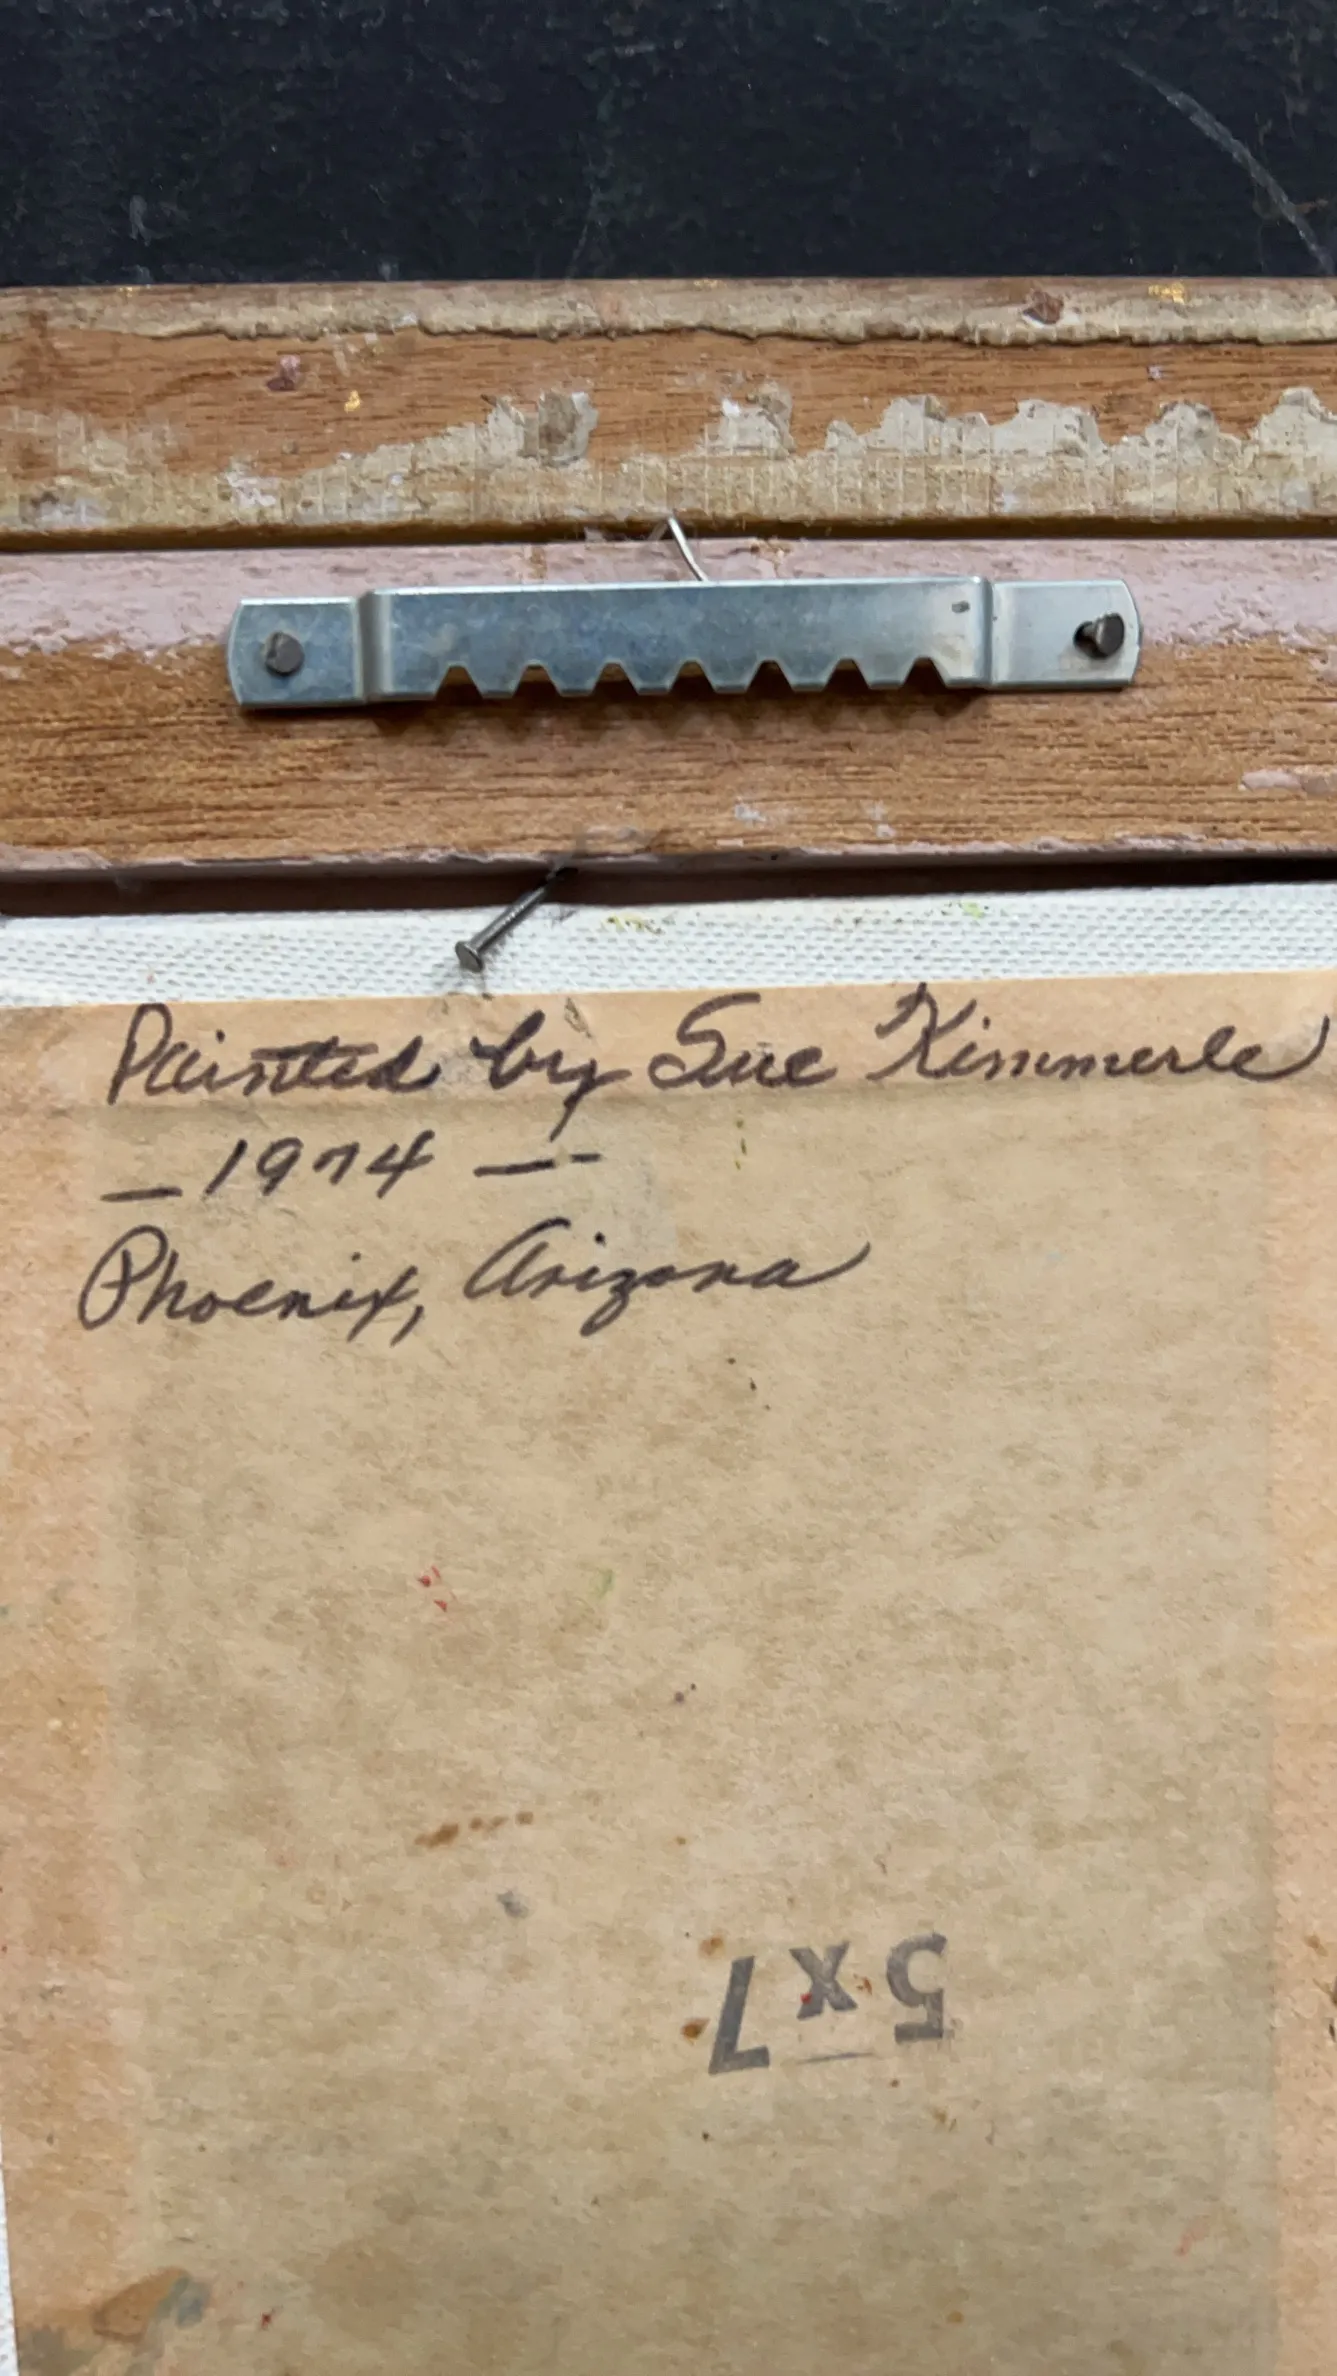 Painted by Sue Kimmerle
— 1974 —
Phoenix, Arizona
5x7